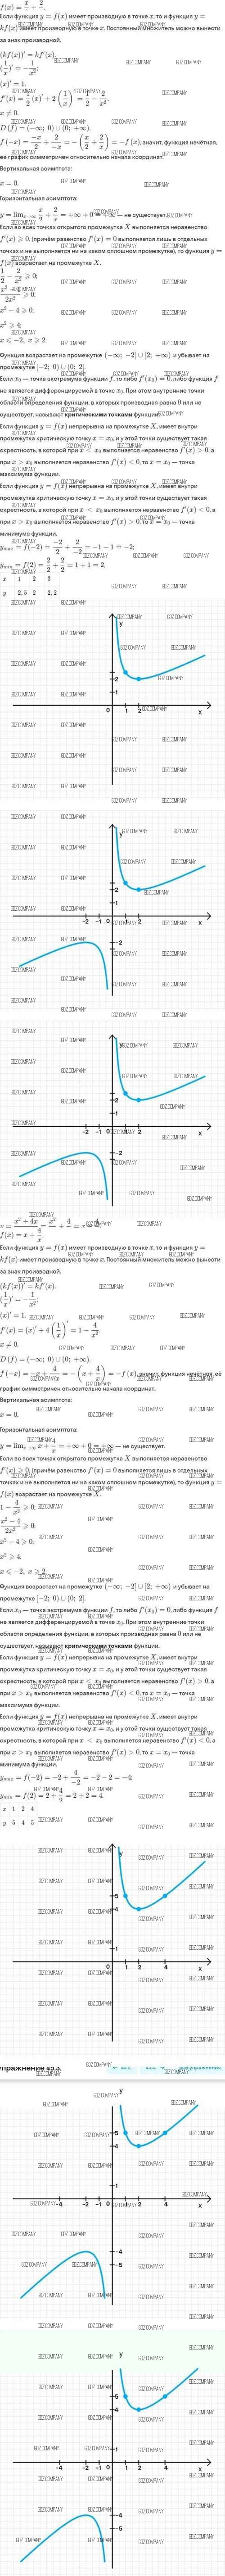 f(x) = x/2 + 2/x.
Если функция y = f(x) имеет производную в точке x, то и функция y =
kf(x) имеет производную в точке x. Постоянный множитель можно вынести
за знак производной.
(kf(x))' = kf'(x).
(1/x)' = −1/x²;
(x)' = 1.
f'(x) = 1/2 (x)' + 2(1/x)' = 1/2 − 2/x².
x ≠ 0.
D(f) = (−∞; 0) ∪ (0; +∞).
f(−x) = −x/2 + 2/−x = −(x/2 + 2/x) = −f(x), значит, функция нечётная,
её график симметричен относительно начала координат.
Вертикальная асимптота:
x = 0.
Горизонтальная асимптота:
— не существует.
Если во всех точках открытого промежутка X выполняется неравенство
f'(x) ⩾ 0, причём равенство f'(x) = 0 выполняется лишь в отдельных
точках и не выполняется ни на каком сплошном промежутке), то функция y =
f(x) возрастает на промежутке X.
1/2 − 2/x² ⩾ 0;
x² − 4/2x² ⩾ 0;
x² − 4 ⩾ 0;
x² ⩾ 4;
x ⩽ −2, x ⩾ 2.
Функция возрастает на промежутке (−∞; −2] ∪ [2; +∞) и убывает на
промежутке [−2; 0) ∪ (0; 2].
Если x₀ — точка экстремума функции f, то либо f'(x₀) = 0, либо функция f
не является дифференцируемой в точке x₀. При этом внутренние точки
области определения функции, в которых производная равна 0 или не
существует, называют критическими точками функции.
Если функция y = f(x) непрерывна на промежутке X, имеет внутри
промежутка критическую точку x = x₀, и у этой точки существует такая
окрестность, в которой при x < x₀ выполняется неравенство f'(x) > 0, а
при x > x₀ выполняется неравенство f'(x) < 0, то x = x₀ — точка
максимума функции.
Если функция y = f(x) непрерывна на промежутке X, имеет внутри
промежутка критическую точку x = x₀, и у этой точки существует такая
окрестность, в которой при x < x₀ выполняется неравенство f'(x) < 0, а
при x > x₀ выполняется неравенство f'(x) > 0, то x = x₀ — точка
минимума функции.
y max = f(−2) = −2/2 + 2/−2 = −1 − 1 = −2;
y min = f(2) = 2/2 + 2/2 = 1 + 1 = 2.
x 1 2 3
y 2,5 2 2,2
y
2
1
0 1 2 x
y
2
1
-2 -1 0 1 2 x
-2
y
2
1
-2 -1 0 1 2 x
-2
f(x) = x + 4/x.
Если функция y = f(x) имеет производную в точке x, то и функция y =
kf(x) имеет производную в точке x. Постоянный множитель можно вынести
за знак производной.
(kf(x))' = kf'(x).
(1/x)' = −1/x²;
(x)' = 1.
f'(x) = (x)' + 4(1/x)' = 1 − 4/x².
x ≠ 0.
D(f) = (−∞; 0) ∪ (0; +∞).
f(−x) = −x + 4/−x = −(x + 4/x) = −f(x), значит, функция нечётная, её
график симметричен относительно начала координат.
Вертикальная асимптота:
x = 0.
Горизонтальная асимптота:
— не существует.
Если во всех точках открытого промежутка X выполняется неравенство
f'(x) ⩾ 0, причём равенство f'(x) = 0 выполняется лишь в отдельных
точках и не выполняется ни на каком сплошном промежутке), то функция y =
f(x) возрастает на промежутке X.
1 − 4/x² ⩾ 0;
x² − 4/2x² ⩾ 0;
x² − 4 ⩾ 0;
x² ⩾ 4;
x ⩽ −2, x ⩾ 2.
Функция возрастает на промежутке (−∞; −2] ∪ [2; +∞) и убывает на
промежутке [−2; 0) ∪ (0; 2].
Если x₀ — точка экстремума функции f, то либо f'(x₀) = 0, либо функция f
не является дифференцируемой в точке x₀. При этом внутренние точки
области определения функции, в которых производная равна 0 или не
существует, называют критическими точками функции.
Если функция y = f(x) непрерывна на промежутке X, имеет внутри
промежутка критическую точку x = x₀, и у этой точки существует такая
окрестность, в которой при x < x₀ выполняется неравенство f'(x) > 0, а
при x > x₀ выполняется неравенство f'(x) < 0, то x = x₀ — точка
максимума функции.
Если функция y = f(x) непрерывна на промежутке X, имеет внутри
промежутка критическую точку x = x₀, и у этой точки существует такая
окрестность, в которой при x < x₀ выполняется неравенство f'(x) < 0, а
при x > x₀ выполняется неравенство f'(x) > 0, то x = x₀ — точка
минимума функции.
y max = f(−2) = −2 + 4/−2 = −2 − 2 = −4;
y min = f(2) = 2 + 4/2 = 2 + 2 = 4.
x 1 2 4
y 5 4 5
y
5
4
1
0 1 2 4 x
y
5
4
1
-4 -2 -1 0 1 2 4 x
-4
-5
y
5
4
1
-4 -2 -1 0 1 2 4 x
-4
-5